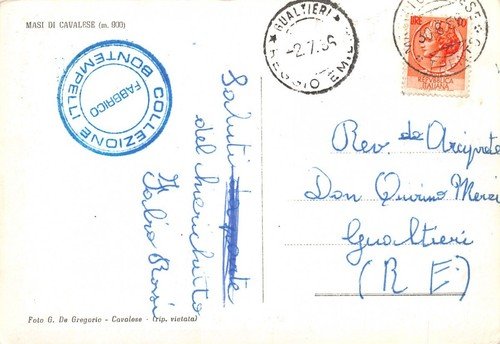 MASI DI CAVALESE (m. 800)
COLLEZIONE BONTEMPELLI
FABBRICO
Saluti
del chierichetto
Fabio Rossi
GUALTIERI
-2.7.56
REGGIO EMILIA
LIRE 10
REPUBBLICA
ITALIANA
Rev. do Arciprete
Don Quirino
Gualtieri
(R E)
Foto G. De Gregorio - Cavalese - (rip. vietata)